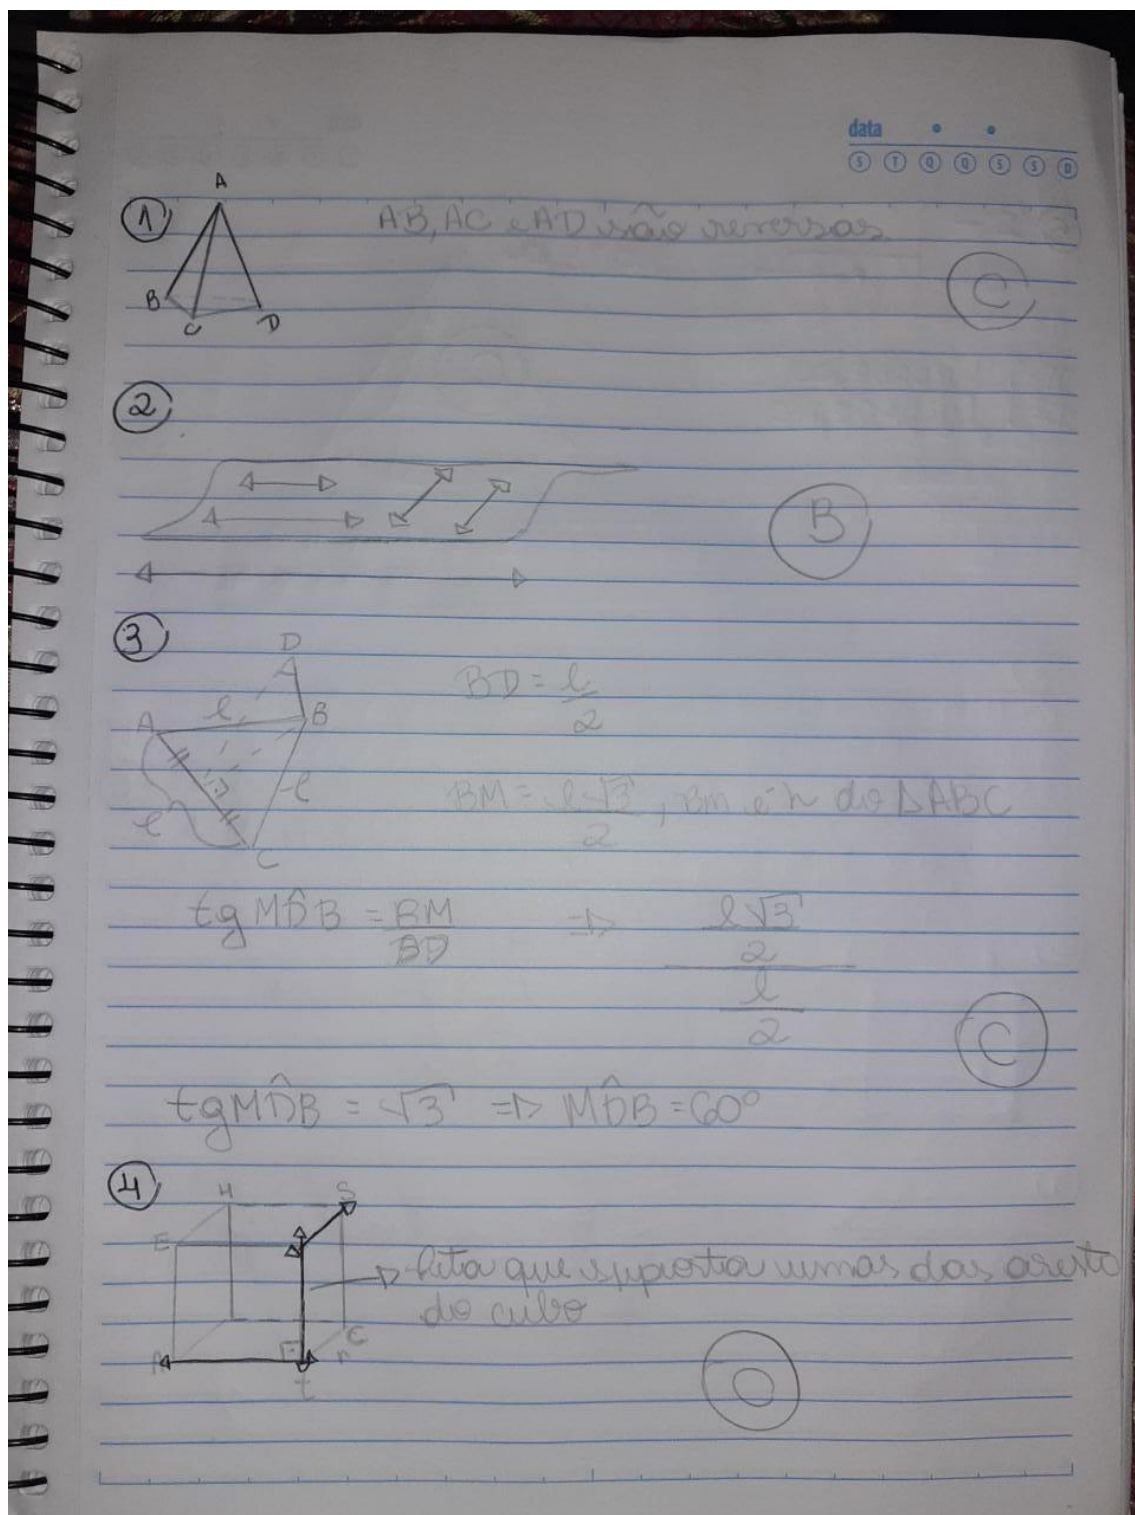 data
S T Q Q S S D
1
A
B
C
D
AB, AC e AD são reversas
C
2
B
3
D
A
B
C
l
l
l
BD = l/2
BM = l√3/2, BM é h do ΔABC
tg MD̂B = BM/BD ⇒ l√3/2 / l/2
C
tg MD̂B = √3 ⇒ MD̂B = 60°
4
H
S
E
A
C
r
t
Reta que suporta umas das aresta
do cubo